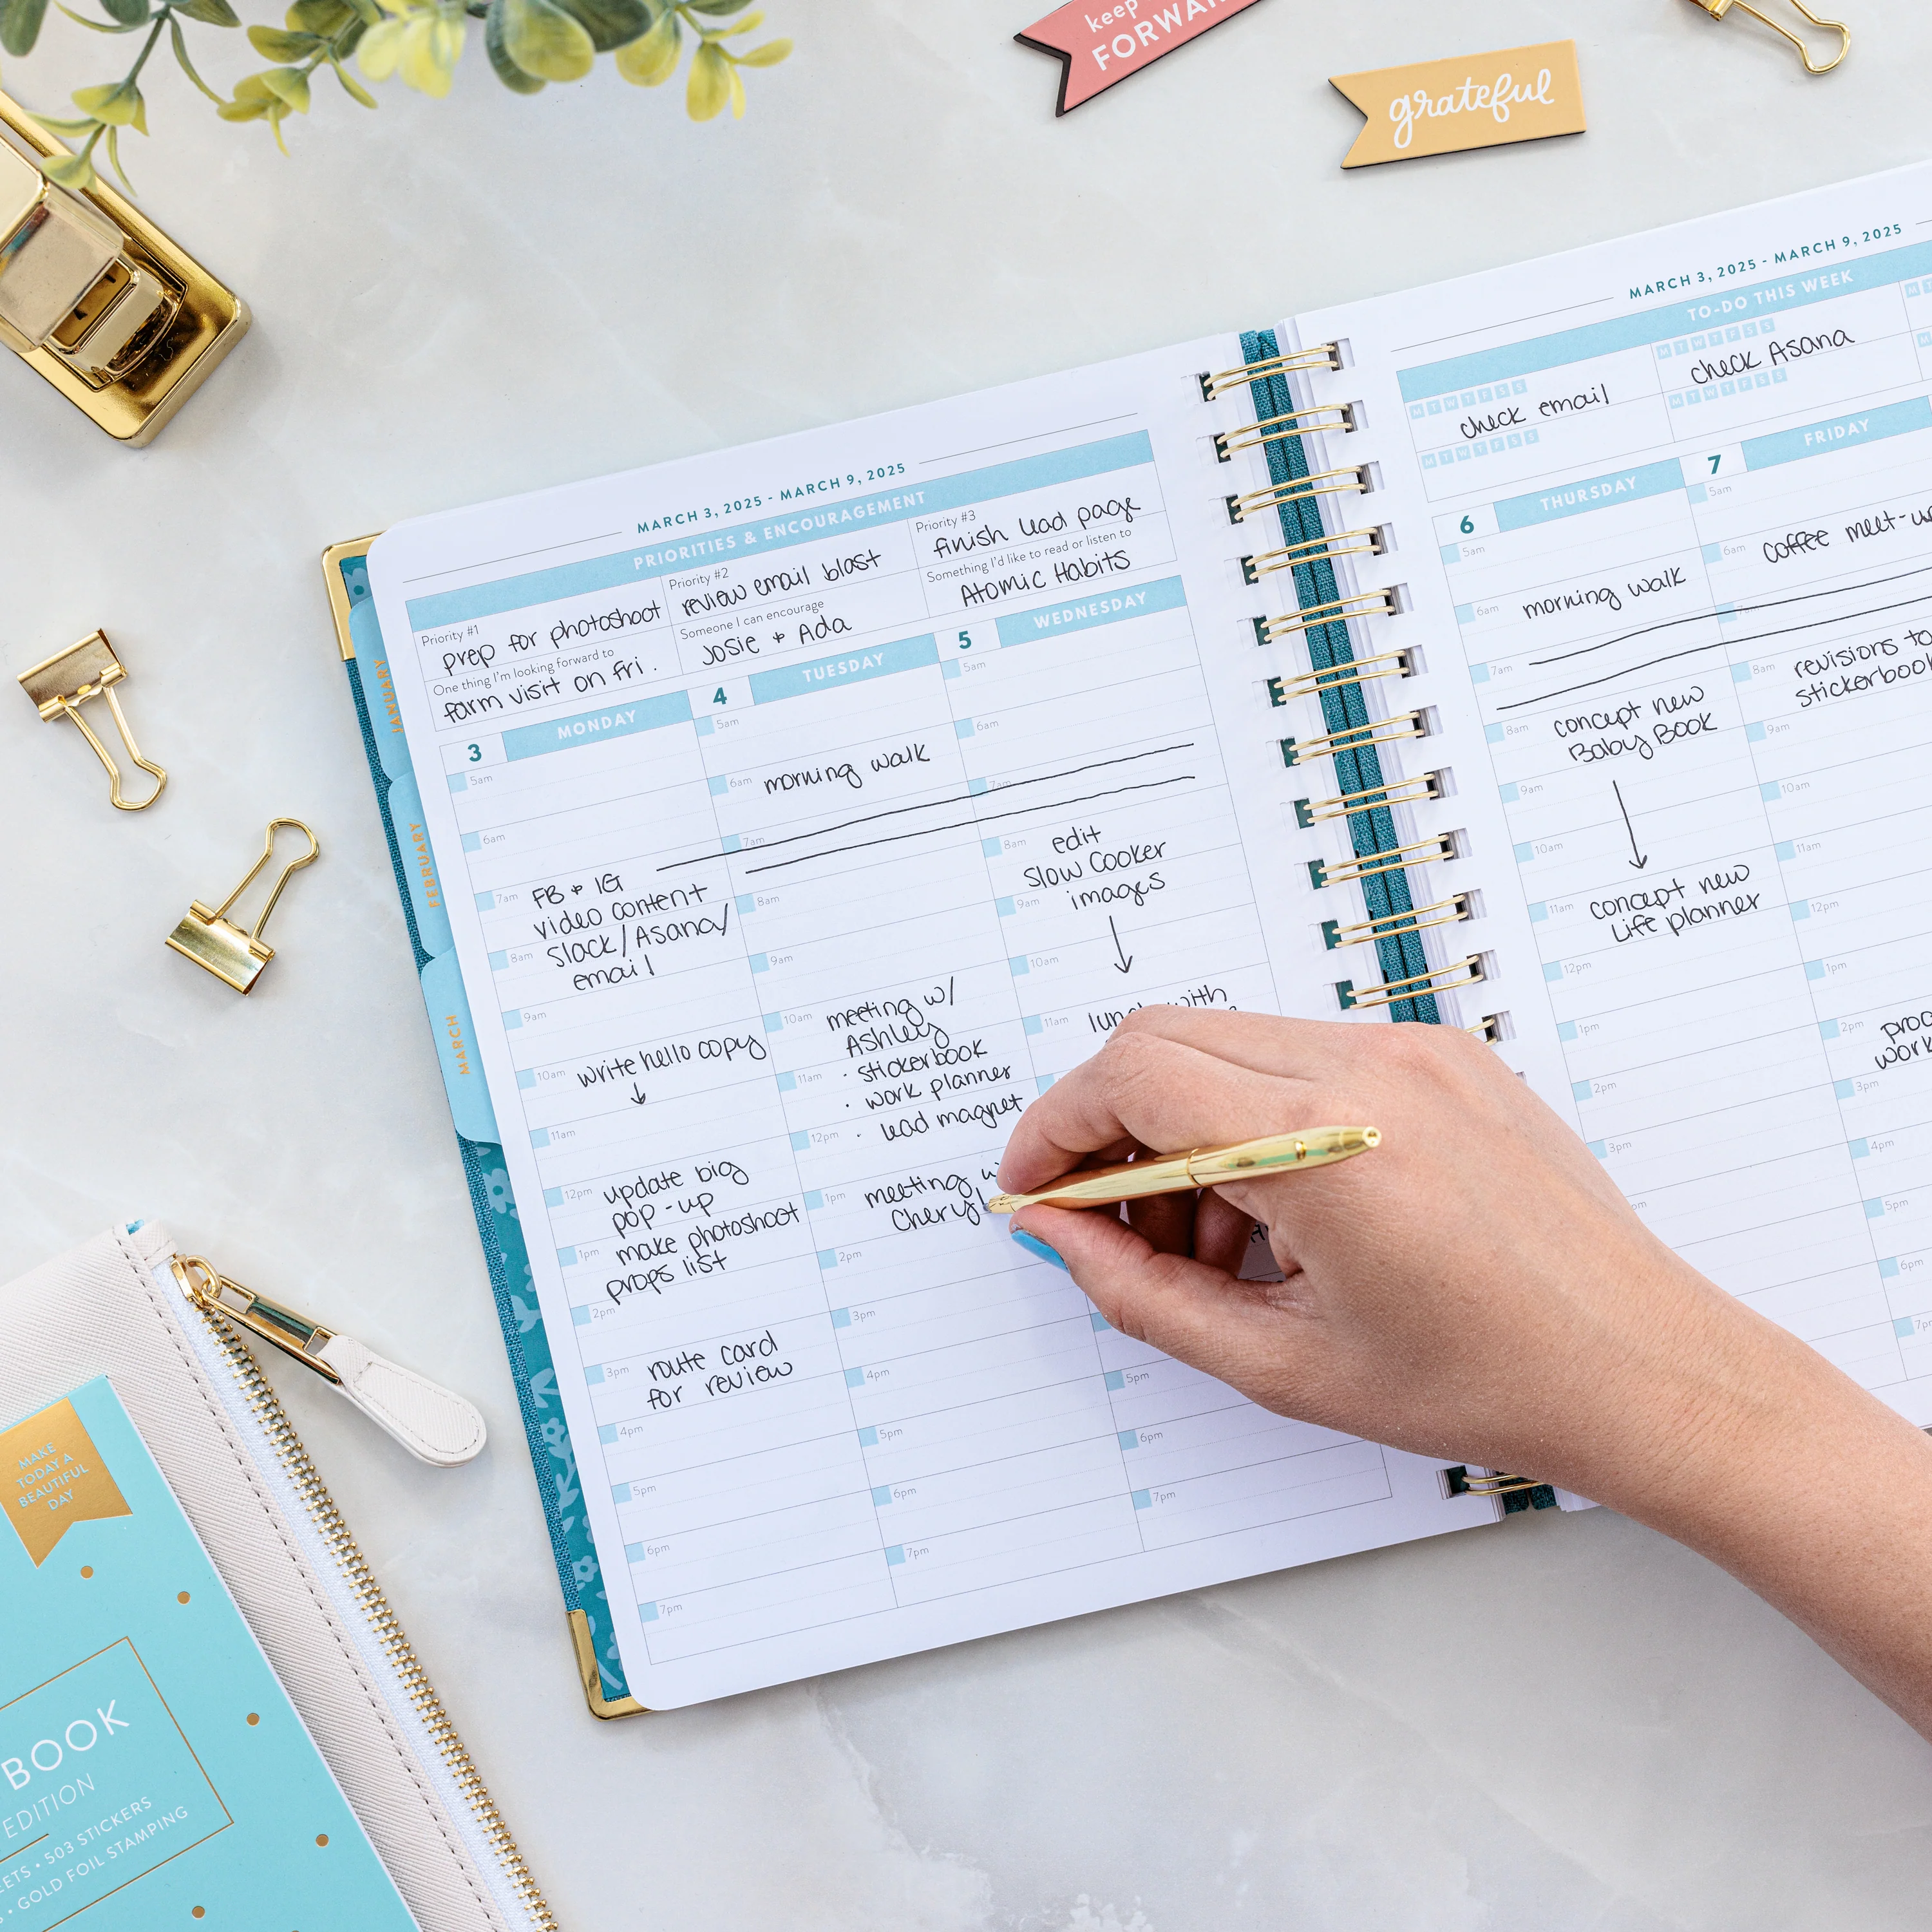 keep
FORWAR
grateful
MARCH 3, 2025 - MARCH 9, 2025
PRIORITIES & ENCOURAGEMENT
Priority #1
prep for photoshoot
One thing I'm looking forward to
farm visit on fri.
Priority #2
review email blast
Someone I can encourage
Josie + Ada
Priority #3
finish lead page
Something I'd like to read or listen to
Atomic Habits
JANUARY
FEBRUARY
MARCH
3 MONDAY
5am
6am
7am
FB + IG
video content
Slack/Asana/
email
8am
9am
10am
write hello copy
11am
12pm
update big
pop-up
1pm
make photoshoot
props list
2pm
3pm
route card
for review
4pm
5pm
6pm
7pm
4 TUESDAY
5am
6am
morning walk
7am
8am
9am
10am
meeting w/
Ashley
11am
· stickerbook
· work planner
· lead magnet
12pm
1pm
meeting w
Cheryl
2pm
3pm
4pm
5pm
6pm
7pm
5 WEDNESDAY
5am
6am
7am
8am
edit
Slow Cooker
images
9am
10am
11am
lunch with
5pm
6pm
7pm
MARCH 3, 2025 - MARCH 9, 2025
TO-DO THIS WEEK
M T W T F S S
check email
M T W T F S S
M T W T F S S
check Asana
M T W T F S S
6 THURSDAY
5am
6am
morning walk
7am
8am
concept new
Baby Book
9am
10am
11am
concept new
Life planner
12pm
1pm
2pm
3pm
7 FRIDAY
5am
6am
coffee meet-u
7am
8am
revisions to
stickerbook
9am
10am
11am
12pm
1pm
2pm
proc
work
3pm
4pm
5pm
6pm
7p
MAKE
TODAY A
BEAUTIFUL
DAY
BOOK
EDITION
EETS • 503 STICKERS
S • GOLD FOIL STAMPING